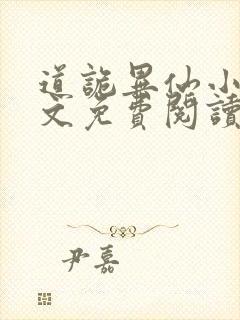 道詭異仙小
文免費閱讀
尹嘉